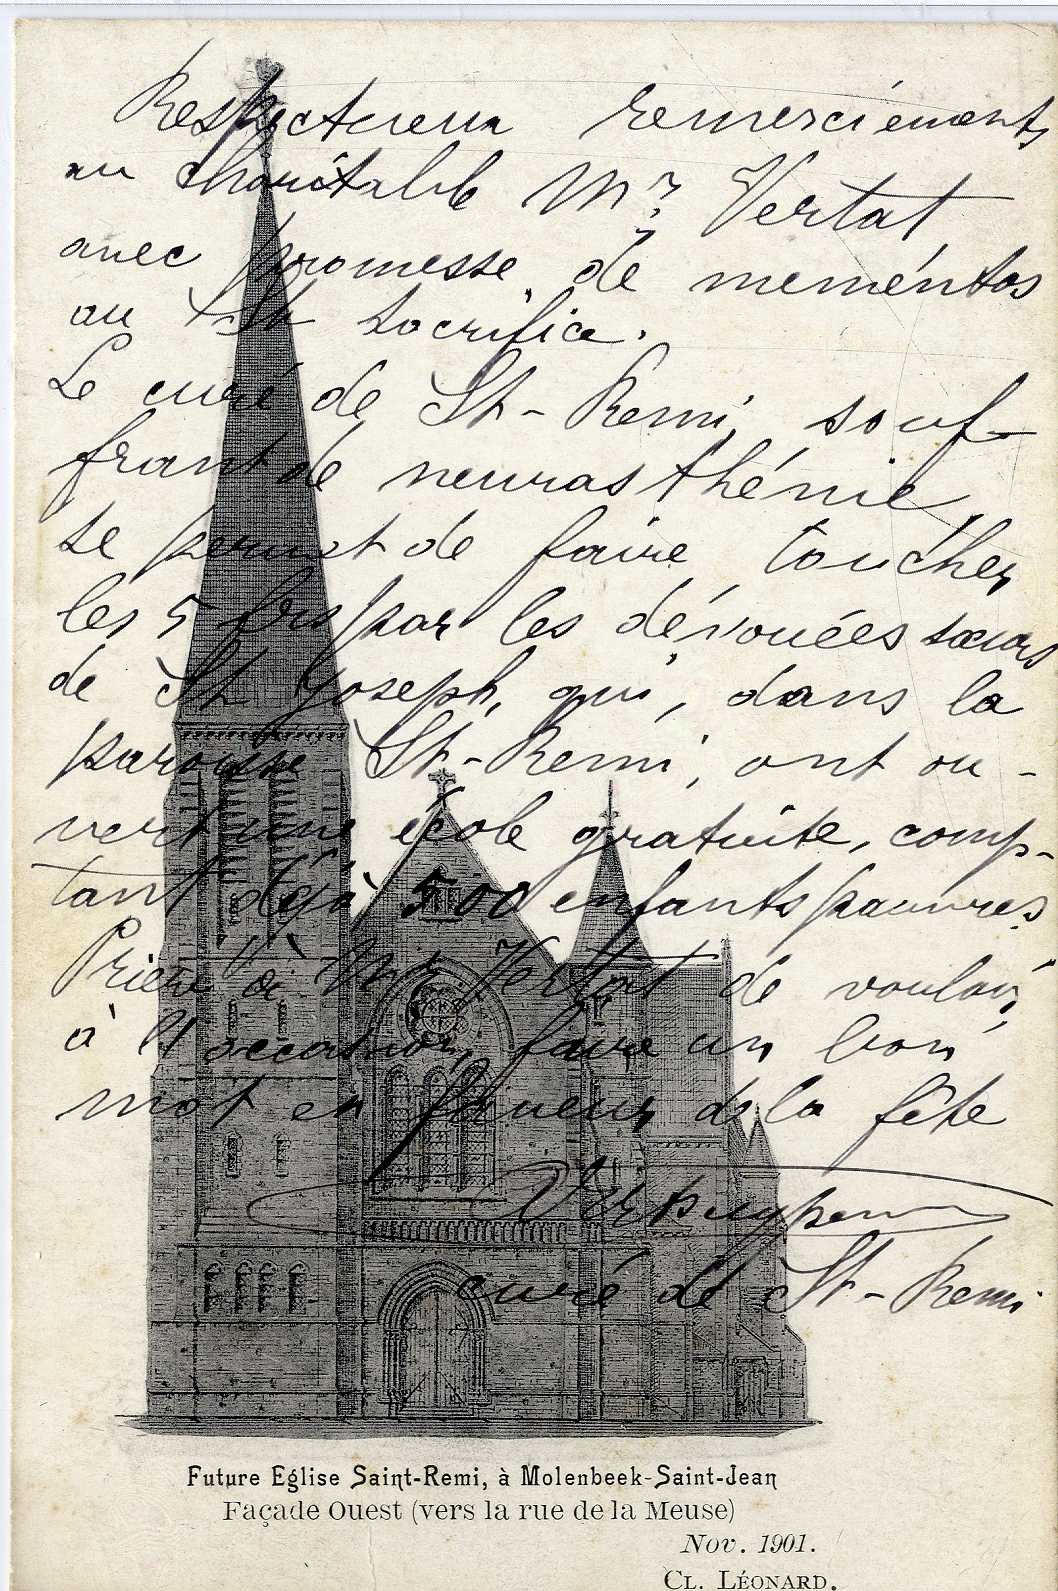 Respectueux remerciements
au charitable Mr Vertat
avec promesse de meméntos
au St sacrifice.
Le curé de St-Remi, souf-
frant de neurasthénie,
se permet de faire toucher
les 5 frs par les dévouées sœurs
de St Joseph, qui, dans la
paroisse St-Remi, ont ou-
vert une école gratuite, comp-
tant déjà 500 enfants pauvres.
Prière à Mr Vertat de vouloir,
à l'occasion, faire un bon
mot en faveur de la fête
curé de St-Remi
Future Eglise Saint-Remi, à Molenbeek-Saint-Jean
Façade Ouest (vers la rue de la Meuse)
Nov. 1901.
CL. LÉONARD.